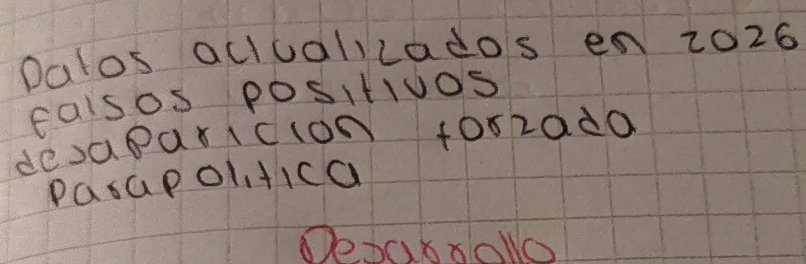 Datos actualizados en 2026
falsos positivos
desaparicion forzada
parapolitica
Desarrollo